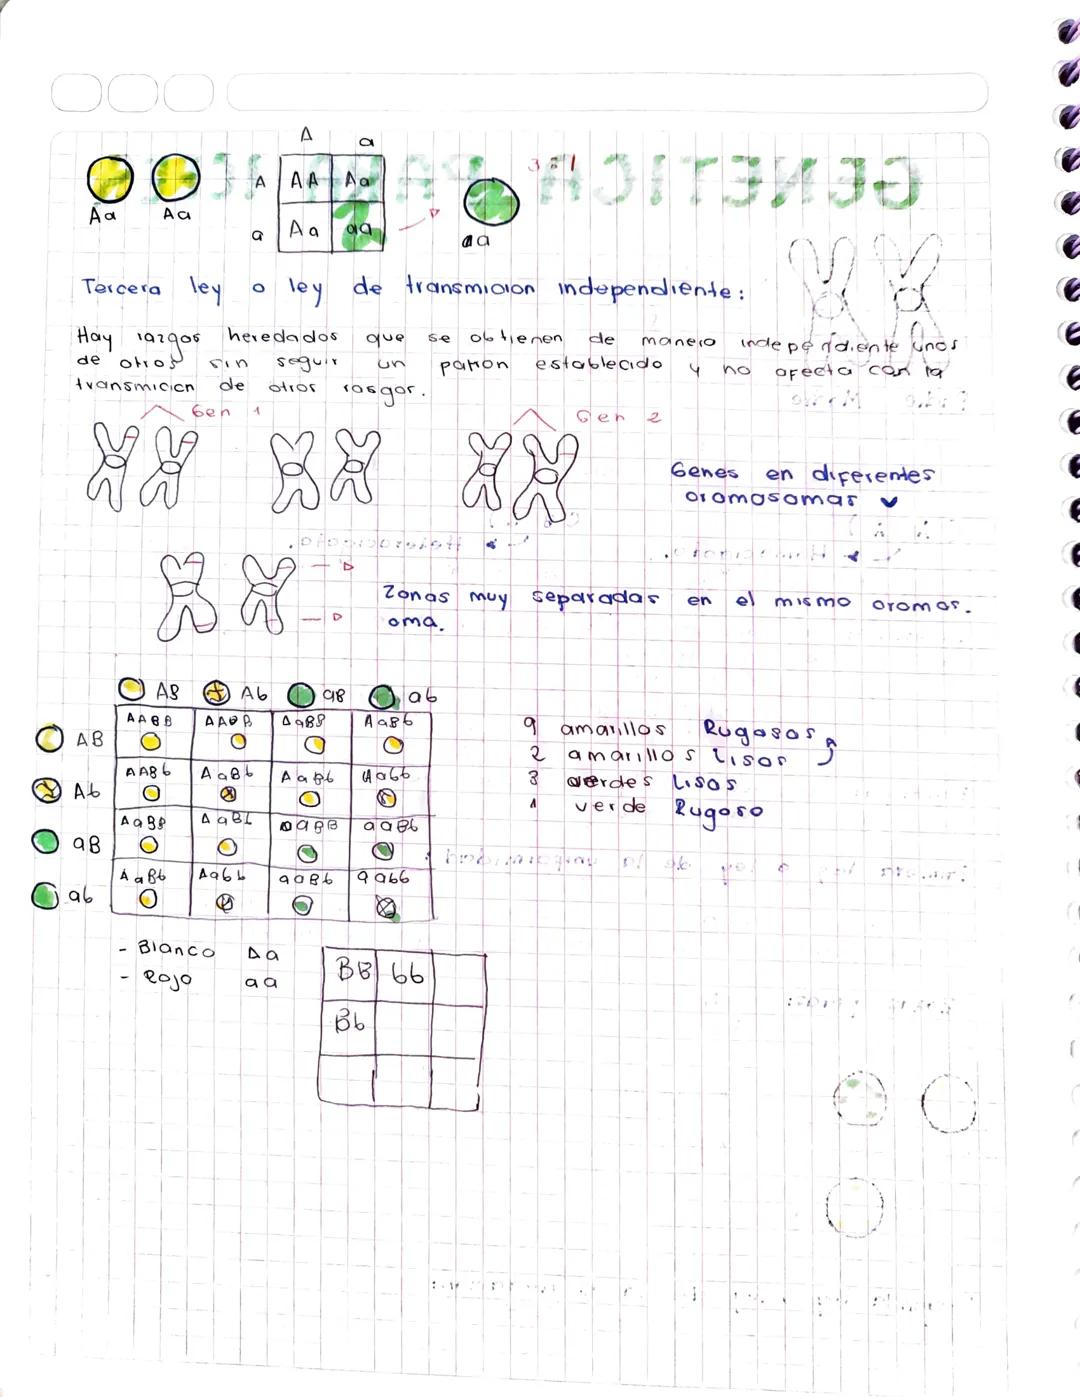 A a
A AA Aa
a Aa aa
Aa Aa
aa
3:1
Tercera ley o ley de transmicion independiente:
Hay razgos heredados que se obtienen de manera independiente unos
de otros sin seguir un patron establecido y no afecta con la
transmicion de otros rasgor.
Gen 1 Gen 2
Genes en diferentes
cromosomas
Zonas muy separadas en el mismo cromos.
oma.
AB Ab aB ab
AB AABB AABB AaBB AaBb
Ab AABb AaBb AaBb Aabb
aB AaBB AaBb aaBB aaBb
ab AaBb Aabb aaBb aabb
9 amarillos Rugosos
2 amarillos Lisos
3 verdes Lisos
1 verde Rugoso
- Blanco Aa
- Rojo aa
BB bb
Bb